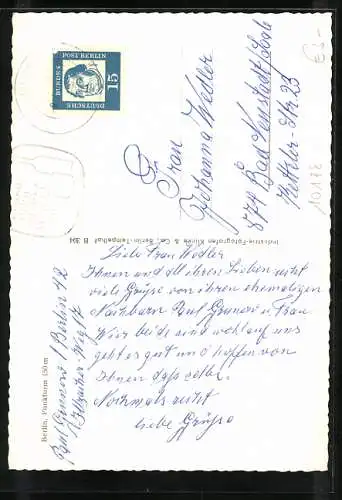 DEUTSCHE
BUNDES
POST BERLIN
15
Frau
Johanna Wedler
874 Bad Neustadt/Saale
-Str 23
10178
Industrie-Fotografen Klinke & Co., Berlin-Tempelhof B 304
Berlin, Funkturm 150 m
Paul Grunow 1 Berlin 42
Liebe Frau Wedler
Ihnen und all ihren Lieben
viele Grüße von ihren ehemaligen
Nachbarn Paul Grunow u. Frau.
Wir beide sind wohlauf uns
geht es gut und hoffen von
Ihnen dasselbe.
Nochmals
liebe Grüße